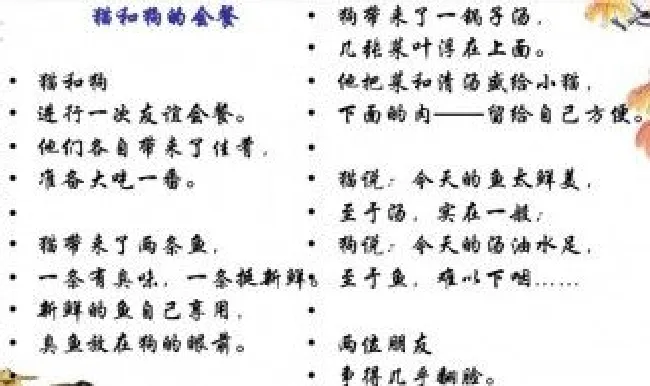 猫和狗的会餐
猫和狗
进行一次友谊会餐。
他们各自带来了佳肴，
准备大吃一番。
猫带来了两条鱼，
一条有臭味，一条挺新鲜。
新鲜的鱼自己享用，
臭鱼放在狗的眼前。
狗带来了一锅子汤，
几张菜叶浮在上面。
他把菜和清汤盛给小猫，
下面的肉——留给自己方便。
猫说：今天的鱼太鲜美，
至于汤，实在一般；
狗说：今天的汤油水足，
至于鱼，难以下咽……
两位朋友
争得几乎翻脸。